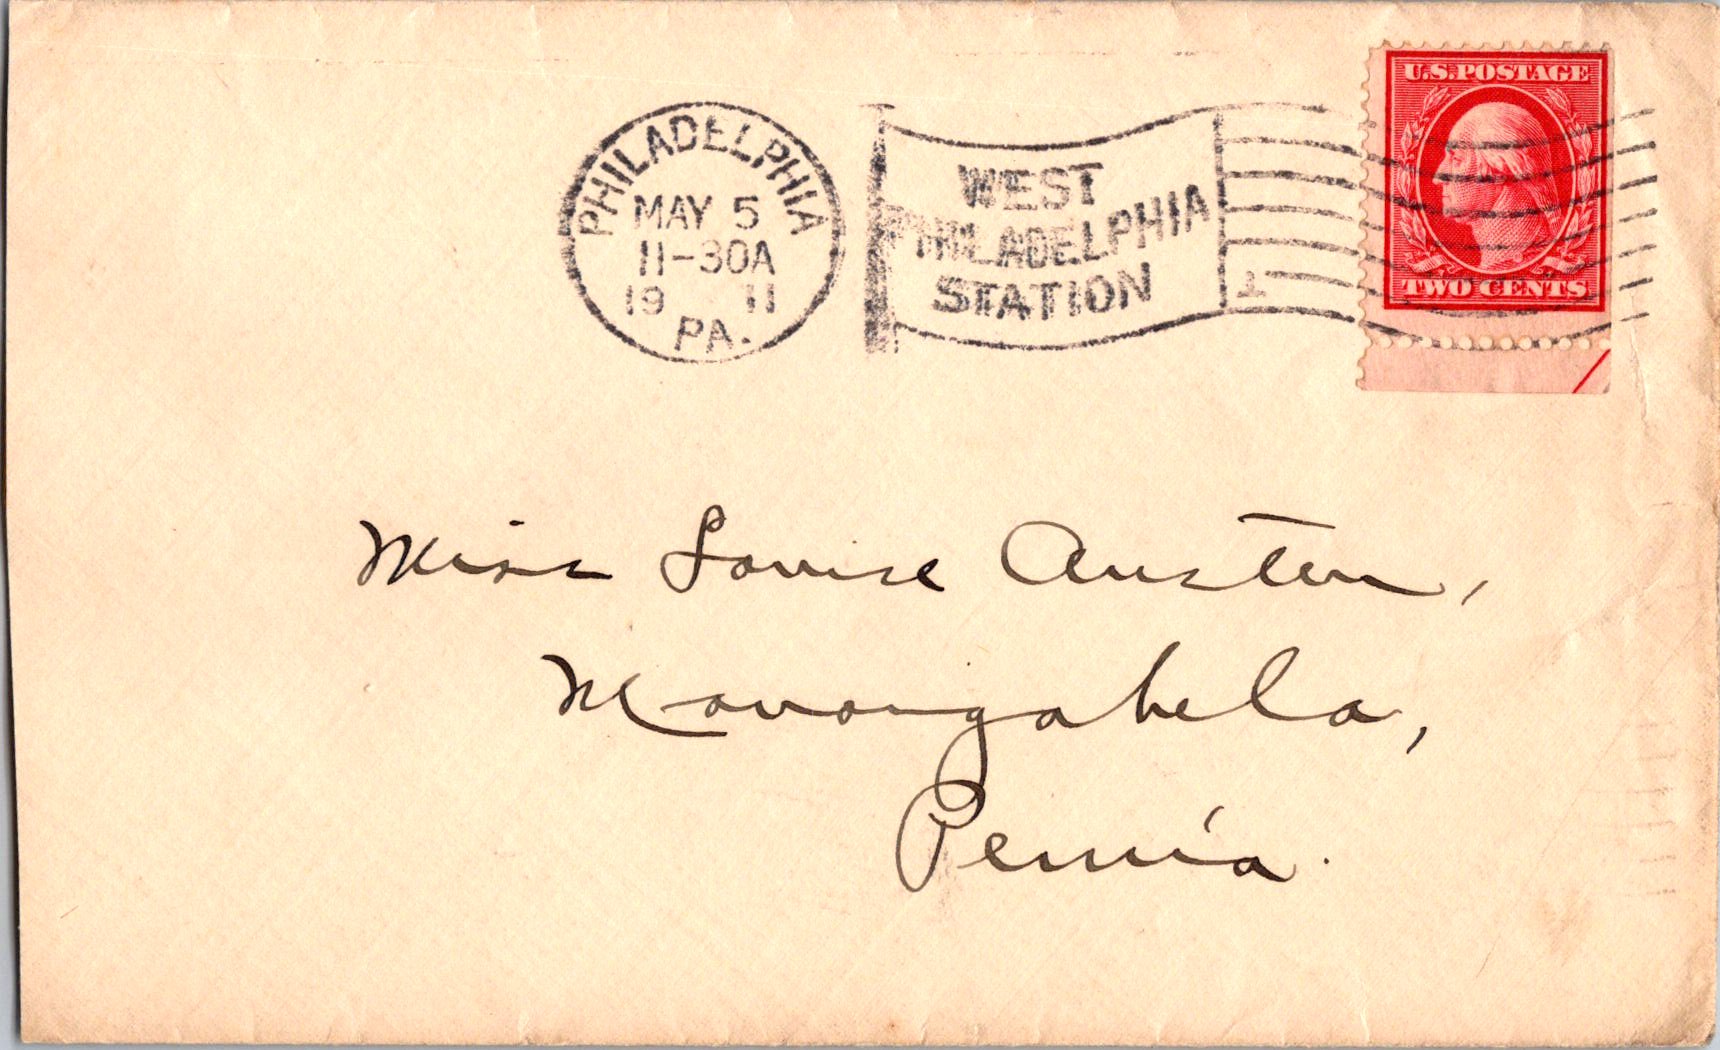 PHILADELPHIA
MAY 5
11-30A
19 11
PA.
WEST
PHILADELPHIA
STATION
U.S. POSTAGE
TWO CENTS
Miss Louise Austen,
Monongahela,
Penn'a.